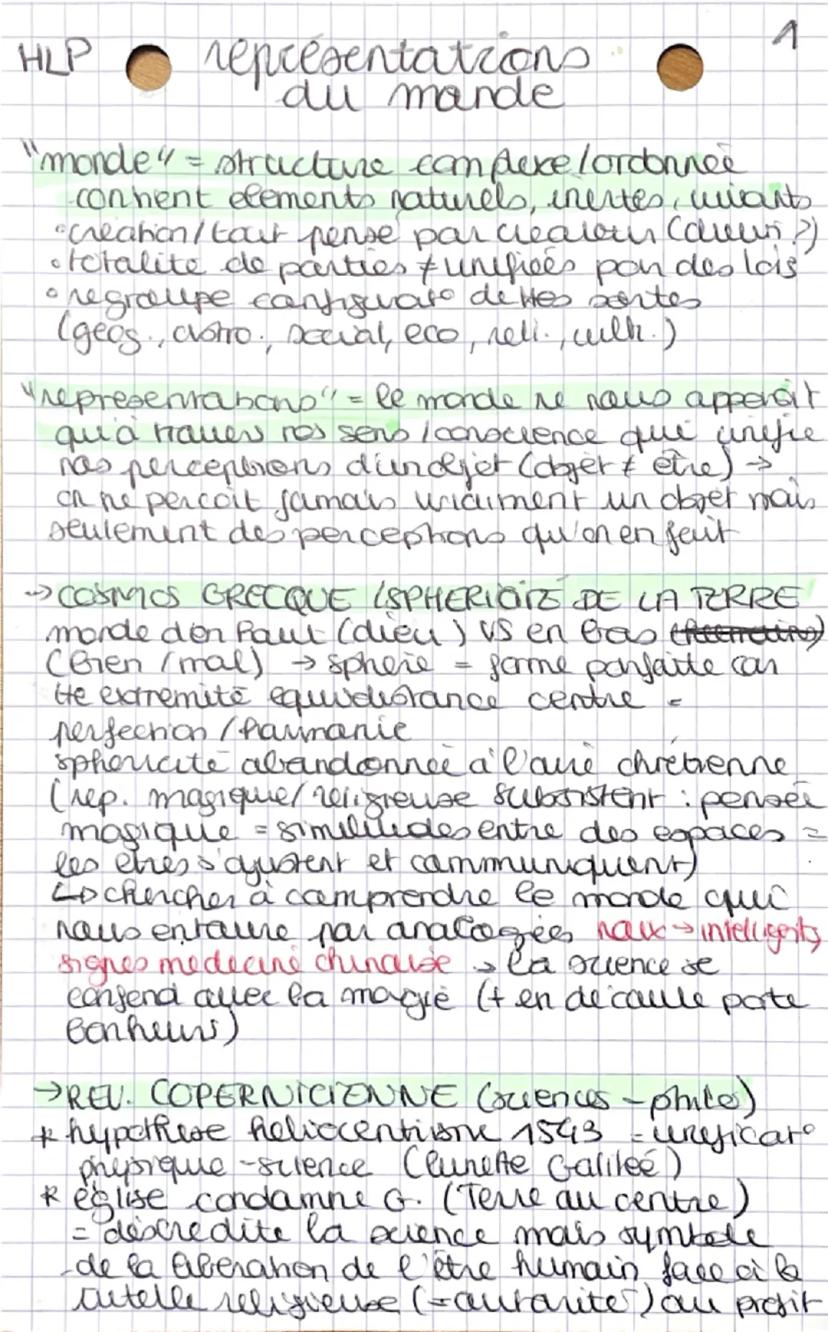 HLP représentations 1
du monde
"monde" = structure complexe/ordonnée
contient elements naturels, inertes, vivants
• création/tout pensé par createur (dieux ?)
• totalité de parties ≠ unifiées par des lois
• regroupe configurat° de ttes sortes
(géog., astro., social, eco, reli., cult.)
"representations" = le monde ne nous apparait
qu'à travers nos sens/conscience qui unifie
nos perceptions d'un objet (objet ≠ être) →
on ne perçoit jamais vraiment un objet mais
seulement des perceptions qu'on en fait
→ COSMOS GRECQUE (SPHERICITE DE LA TERRE
monde d'en haut (dieu) VS en bas
(Bien/mal) → sphère = forme parfaite car
tte extremité equidistance centre =
perfection/harmonie
sphericité abandonnée à l'aire chrétienne
(rep. magique/religieuse subsistent : pensée
magique = similitudes entre des espaces =
les etres s'ajustent et communiquent)
↳ chercher à comprendre le monde qui
nous entoure par analogies noix → intelligents,
signes medecine chinoise → la science se
confond avec la magie (+ en découle porte
bonheurs)
→ REV. COPERNICIENNE (sciences - philo)
* hypothèse héliocentrisme 1543 = unificat°
physique - science (lunette Galilée)
* église condamne G. (Terre au centre)
= discrédite la science mais symbole
de la liberation de l'être humain face à la
tutelle religieuse (= autorité) au profit